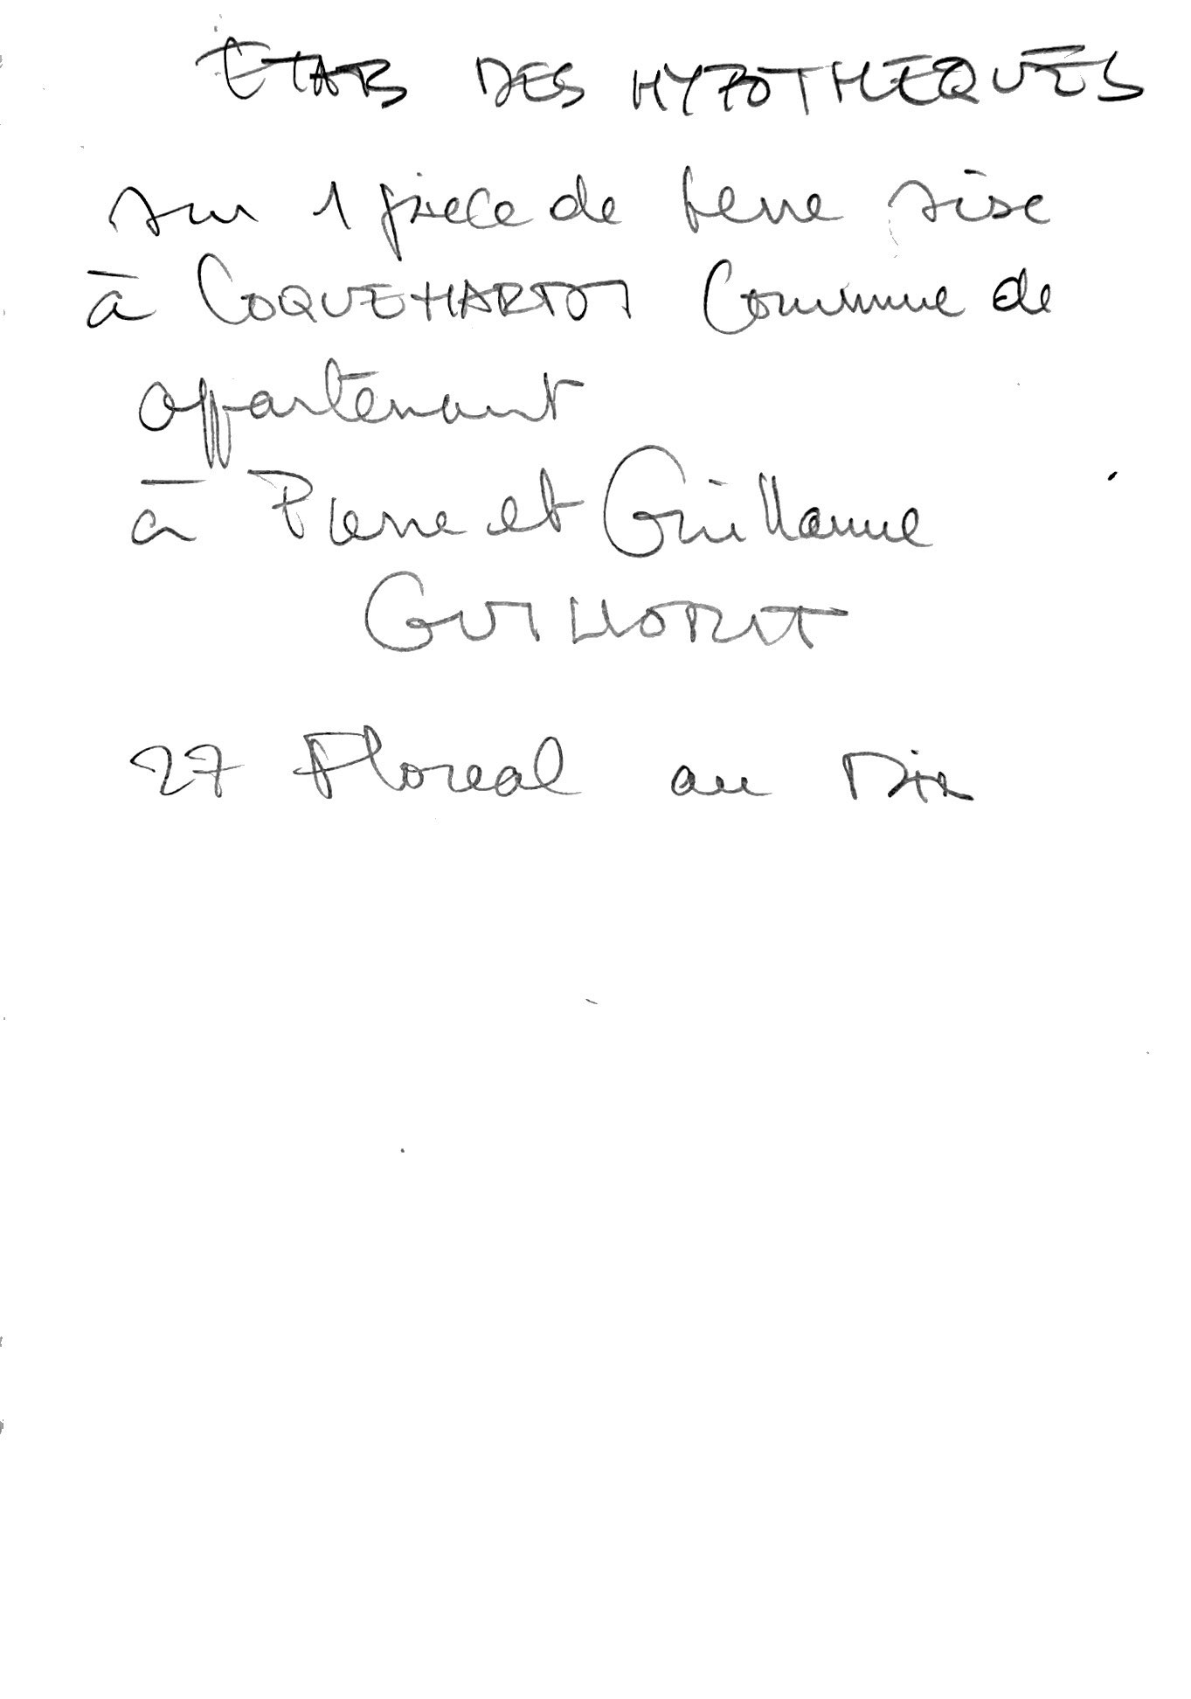 ETATS DES HYPOTHEQUES
sur 1 pièce de terre sise
à Commune de
appartenant
à Pierre et Guillaume
27 Floreal an Dix